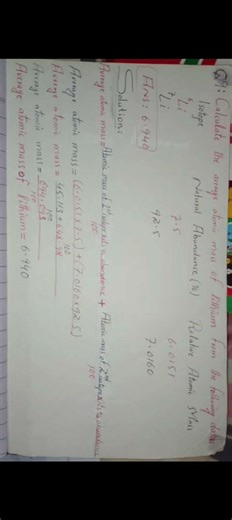 Q9: Calculate the average atomic mass of lithium from the following data:
Isotope Natural Abundance (%) Relative Atomic Mass
⁶Li 7.5 6.0151
⁷Li 92.5 7.0160
[Ans: 6.940]
Solution:
Average atomic mass = Atomic mass of 1st isotope x its abundance + Atomic mass of 2nd isotope x its abundance
100 100
Average atomic mass = (6.0151 x 7.5) + (7.0160 x 92.5)
100
Average atomic mass = 45.113 +
100
Average atomic mass =
100
Average atomic mass of lithium = 6.940